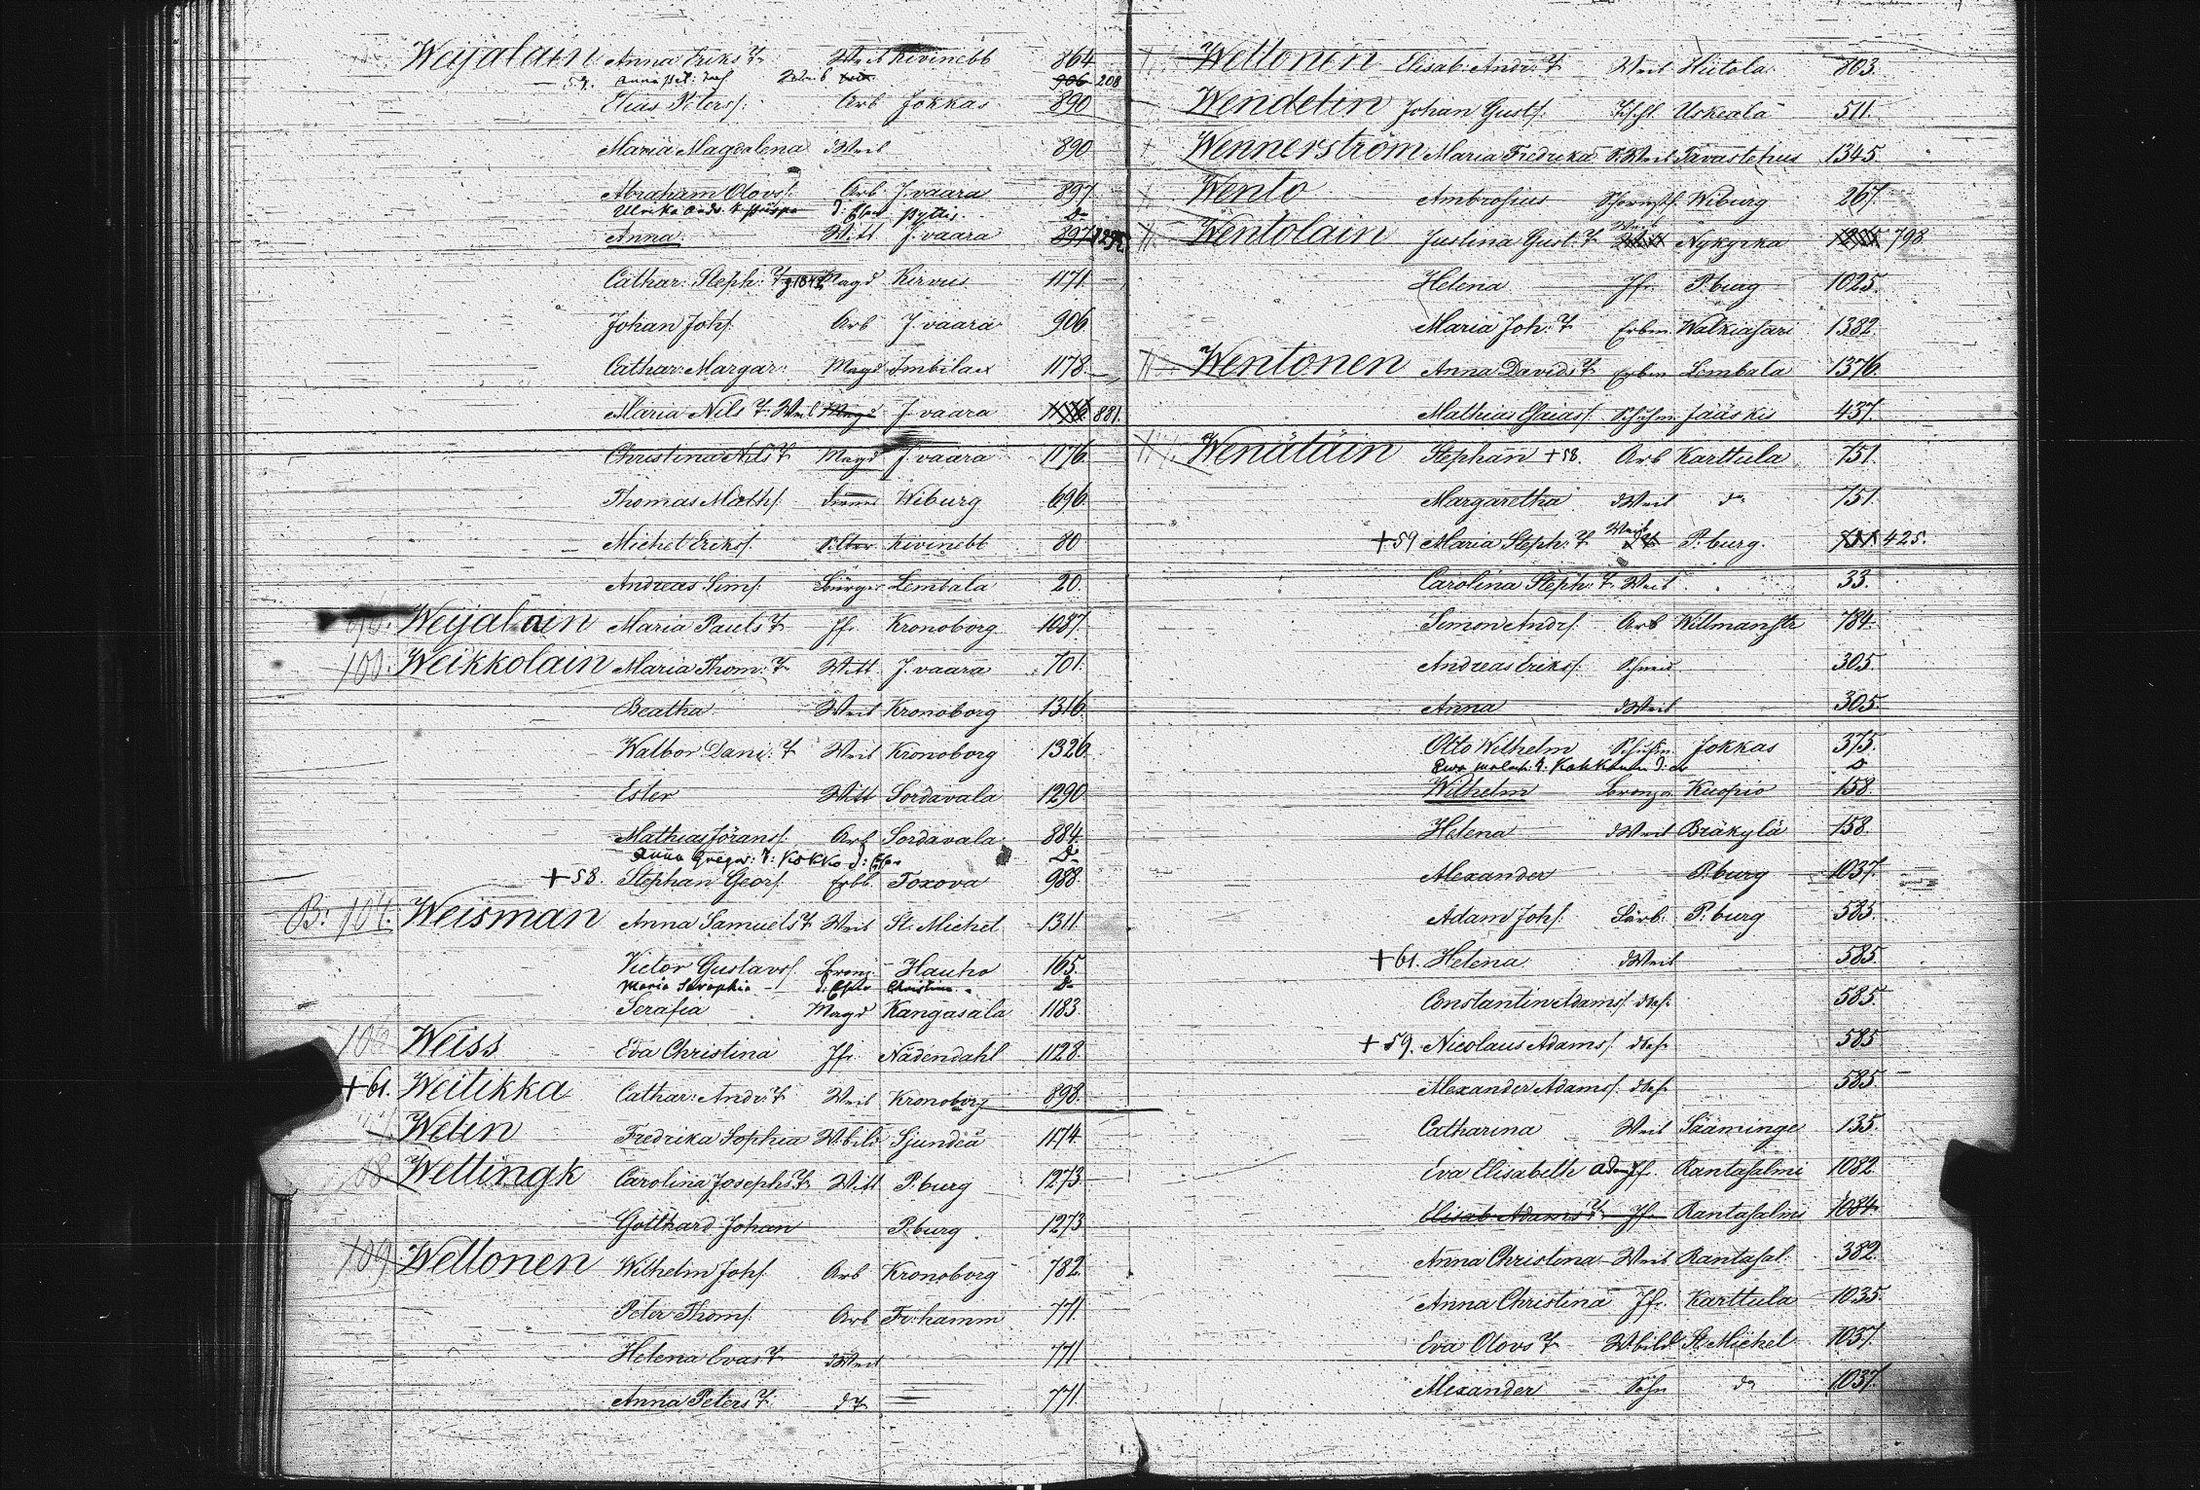 Weijalain Anna Eriks T. Weib Kivinebb 864
59. Anna Weib 906 208
Elias Peterss. Arb Jokkas 890
Maria Magdalena dWeib 890
Abraham Olovs. Arb J. vaara 897
Ulrika d: Pyttis. D-
Anna Witt J. vaara 897
Cathar: Steph: T. Magd Kirvus 1171
Johan Johs. Arb J. vaara 906
Cathar: Margar: Magd Imbilax 1178
Maria Nils T. Weib Magd J. vaara 881.
Christina Nils T. Magd J. vaara 1176
Thomas Maths. Wiburg 696
Michel Eriks. Kivinebb 80
Andreas Sims. Bürger Lembala 20.
Weijalain Maria Pauls T. Jf. Kronoborg 1087
100. Weikkolain Maria Thom: T. Witt J. vaara 701.
Beatha Weib Kronoborg 1316
Walbor Dani: T. Weib Kronoborg 1326
Ester Witt Sordavala 1290
Mathias Görans. Arb Sordavala 884
Anna Gregor: T: Kokko d: D-
+58. Stephan Geors. Erbb. Toxova 988
B: 104. Weisman Anna Samuels T. Weib St. Michel 1311
Victor Gustavs. Bronz. Hauho 165.
Maria Seraphia d: Christina D-
Serafia Magd Kangasala 1183
Weiss Eva Christina Jf. Nådendahl 1128.
+61. Weitikka Cathar: Andr: T. Weib Kronoborg 898.
Welin Fredrika Sophia Wbild Sjundeå 1174
Wellingk Carolina Josephs T. Witt P.burg 1273
Gotthard Johan P.burg 1273
109 Wellonen Wilhelm Johs. Arb Kronoborg 782.
Peter Thoms. Arb Fr:hamm 771.
Helena Evas T. dWeib 771
Anna Peters T. dT. 771.
Wellonen Elisab: Andr: T. Weib Hiitola 803.
Wendelin Johan Gusts. Uskeala 511.
Wennerström Maria Fredrika S. Weib Tavastehus 1345.
Wento Ambrosius Wiburg 267.
Wentolain Justina Gust: T. Weib Nykyrka 798
Helena Jf. P.burg 1025.
Maria Joh: T. Erbm Walkiasari 1382
Wentonen Anna Davids T. Erbm Lembala 1376.
Mathias Esaias. Schuhm Jääskis 437.
Wenäläin Stephan +58. Arb Karttula 751.
Margaretha dWeib do 751.
+59 Maria Steph: T. Weib P.burg. 751 425.
Carolina Steph: T. Weib 33.
Simon Andrs. Arb Willmanstr 784.
Andreas Eriks. Schneid. 305.
Anna dWeib 305.
Otto Wilhelm Schuhm. Jokkas 375.
d: D
Wilhelm Bronza Kuopio 158
Helena dWeib Bräkylä 158.
Alexander P.burg 1037.
Adam Johs. P.burg 585.
+61. Helena dWeib 585.
Constantin Adams. dess. 585.
+59. Nicolaus Adams. dess. 585
Alexander Adams. dess. 585.
Catharina Weib Sääminge 135.
Eva Elisabeth Adam Jf. Rantasalmi 1082
Elisab Adams T. Jf. Rantasalmi 1084.
Anna Christina Weib Rantasal. 382.
Anna Christina Jf. Karttula 1035.
Eva Olovs T. Wbild St. Michel 1037.
Alexander Sohn do 1037.